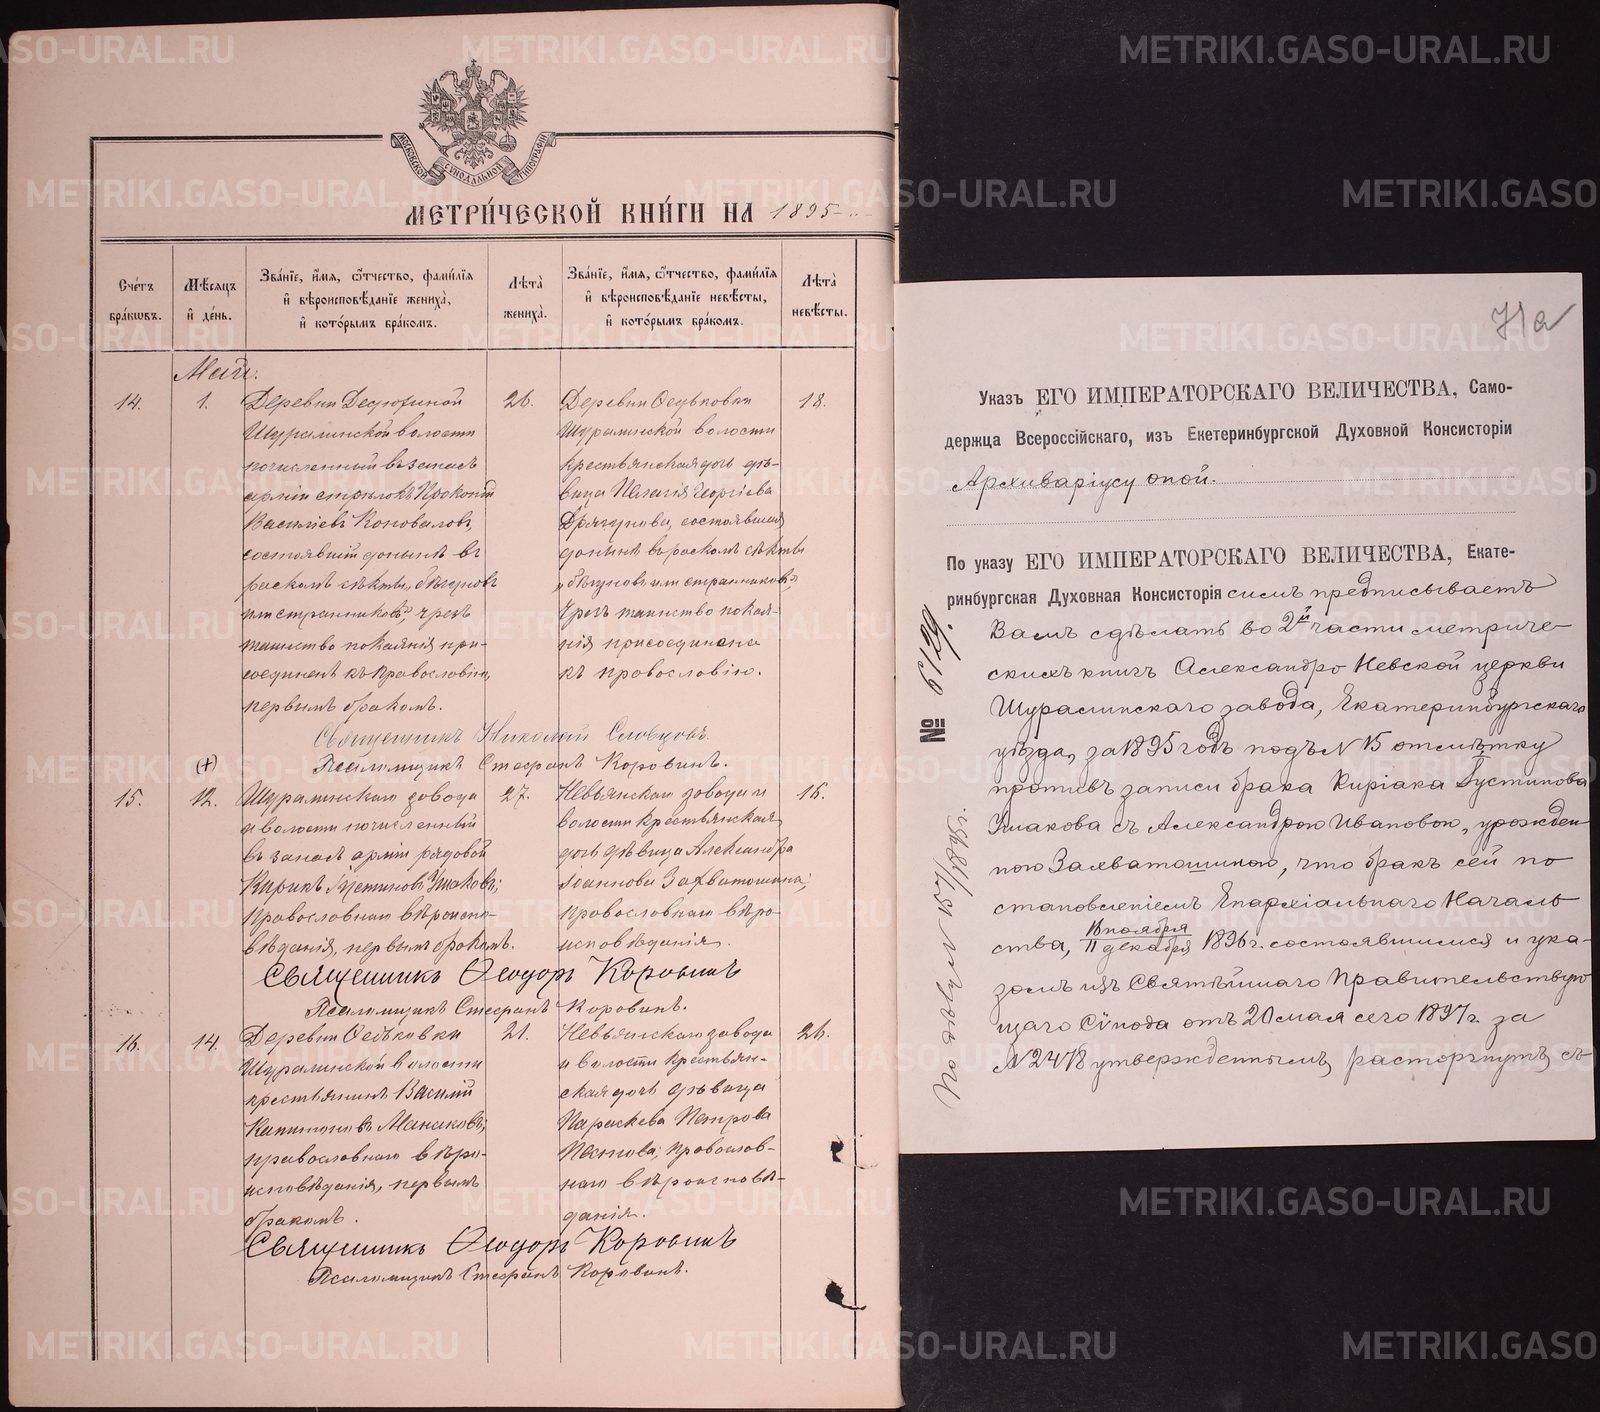 МОСКОВСКОЙ СѴНОДАЛЬНОЙ ТИПОГРАФІИ
МЕТРИ́ЧЕСКОЙ КНИ́ГИ НА 1895
Сче́тъ бра́кѡвъ.
Мѣ́сяцъ и҆ де́нь.
Зва́ніе, и҆́мя, ѻ҆́тчество, фами́лія и҆ вѣроисповѣ́даніе жениха̀, и҆ кото́рымъ бра́комъ.
Лѣ́та жениха̀.
Зва́ніе, и҆́мя, ѻ҆́тчество, фами́лія и҆ вѣроисповѣ́даніе невѣ́сты, и҆ кото́рымъ бра́комъ.
Лѣ́та невѣ́сты.
Май.
14.
1.
Деревни Дедюхиной
Шуралинской волости
почисленный въ запасъ
арміи стрѣлокъ Прокопій
Василіевъ Коноваловъ,
состоявшій донынѣ въ
расколѣ секты „бѣгуновъ
или странниковъ", чрезъ
таинство покаянія при-
соединенъ къ Православію,
первымъ бракомъ.
26.
Деревни Осиновки
Шуралинской волости
крестьянская дочь дѣ-
вица Пелагія Георгіева
состоявшая
донынѣ въ расколѣ секты
„бѣгуновъ или странниковъ",
чрезъ таинство покая-
нія присоединена
къ православію.
18.
Священникъ Николай Словцовъ.
Псаломщикъ Стефанъ Коровинъ.
(+)
15.
12.
Шуралинскаго завода
и волости почисленный
въ запасъ арміи рядовой
Кирикъ Іустиновъ Ушаковъ;
Православнаго вѣроиспо-
вѣданія, первымъ бракомъ.
27.
Невьянскаго завода и
волости крестьянская
дочь дѣвица Александра
Іоаннова Захватошина;
православнаго вѣро-
исповѣданія.
16.
Священникъ Ѳеодоръ Коровинъ
Псаломщикъ Стефанъ Коровинъ.
16.
14.
Деревни Осиновки
Шуралинской волости
крестьянинъ Василій
Капитоновъ Манаковъ;
православнаго вѣро-
исповѣданія, первымъ
бракомъ.
21.
Невьянскаго завода
и волости крестьян-
ская дочь дѣвица
Параскева Петрова
православ-
наго вѣроисповѣ-
данія.
26.
Священникъ Ѳеодоръ Коровинъ
Псаломщикъ Стефанъ Коровинъ.
71а
Указъ ЕГО ИМПЕРАТОРСКАГО ВЕЛИЧЕСТВА, Само-
держца Всероссійскаго, изъ Екетеринбургской Духовной Консисторіи
Архиваріусу оной.
По указу ЕГО ИМПЕРАТОРСКАГО ВЕЛИЧЕСТВА, Екате-
ринбургская Духовная Консисторія симъ предписываетъ
Вамъ сдѣлать во 2й части метриче-
скихъ книгъ Александро Невской церкви
Шуралинскаго завода, Екатеринбургскаго
уѣзда, за 1895 годъ подъ N 15 отмѣтку
противъ записи брака Киріака Іустинова
Ушакова съ Александрою Ивановою, урожден
ною Захватошиною, что бракъ сей по
становленіемъ Епархіальнаго Началь
ства, 16 ноября
11 декабря 1896 г. состоявшимся и ука-
зомъ изъ Святѣйшаго Правительствую
щаго Сѵнода отъ 20 мая сего 1897 г. за
N 2478 утвержденнымъ, расторгнутъ съ
№ 6129.
METRIKI.GASO-URAL.RU